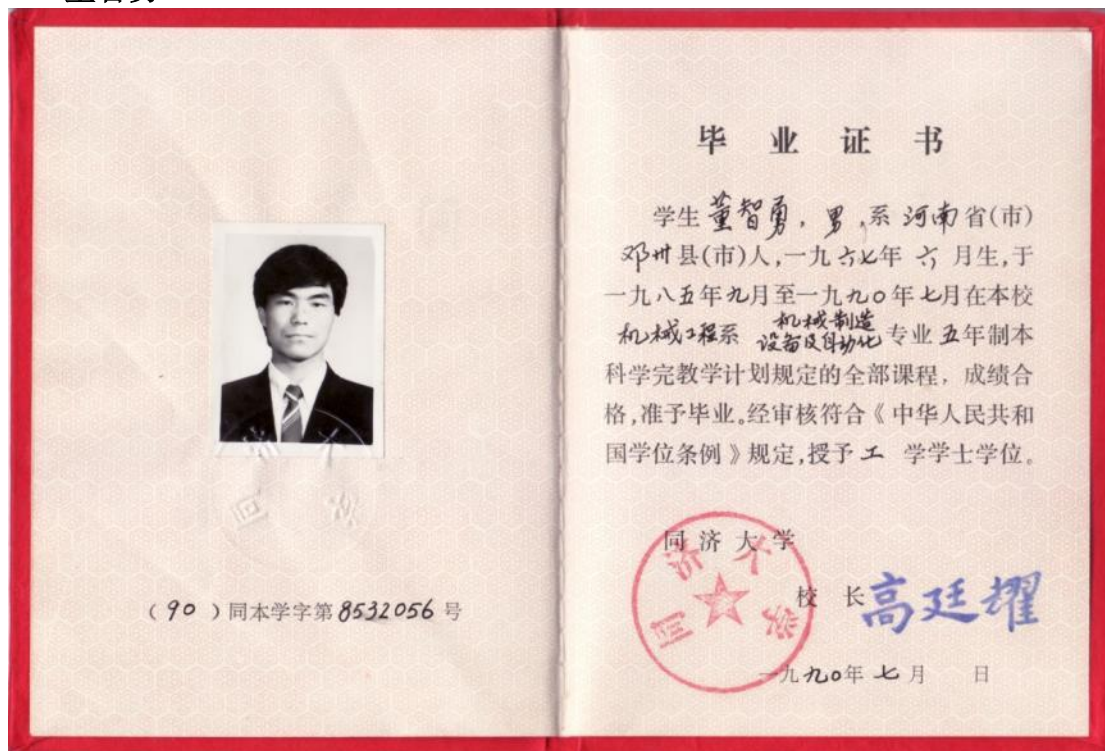 (90)同本学字第8532056号
毕业证书
学生董智勇，男，系河南省(市)
邓州县(市)人，一九六七年六月生，于
一九八五年九月至一九九〇年七月在本校
机械工程系 机械制造
设备及自动化专业五年制本
科学完教学计划规定的全部课程，成绩合
格，准予毕业。经审核符合《中华人民共和
国学位条例》规定，授予工学学士学位。
同济大学
同济大学
校长高廷耀
一九九〇年七月 日